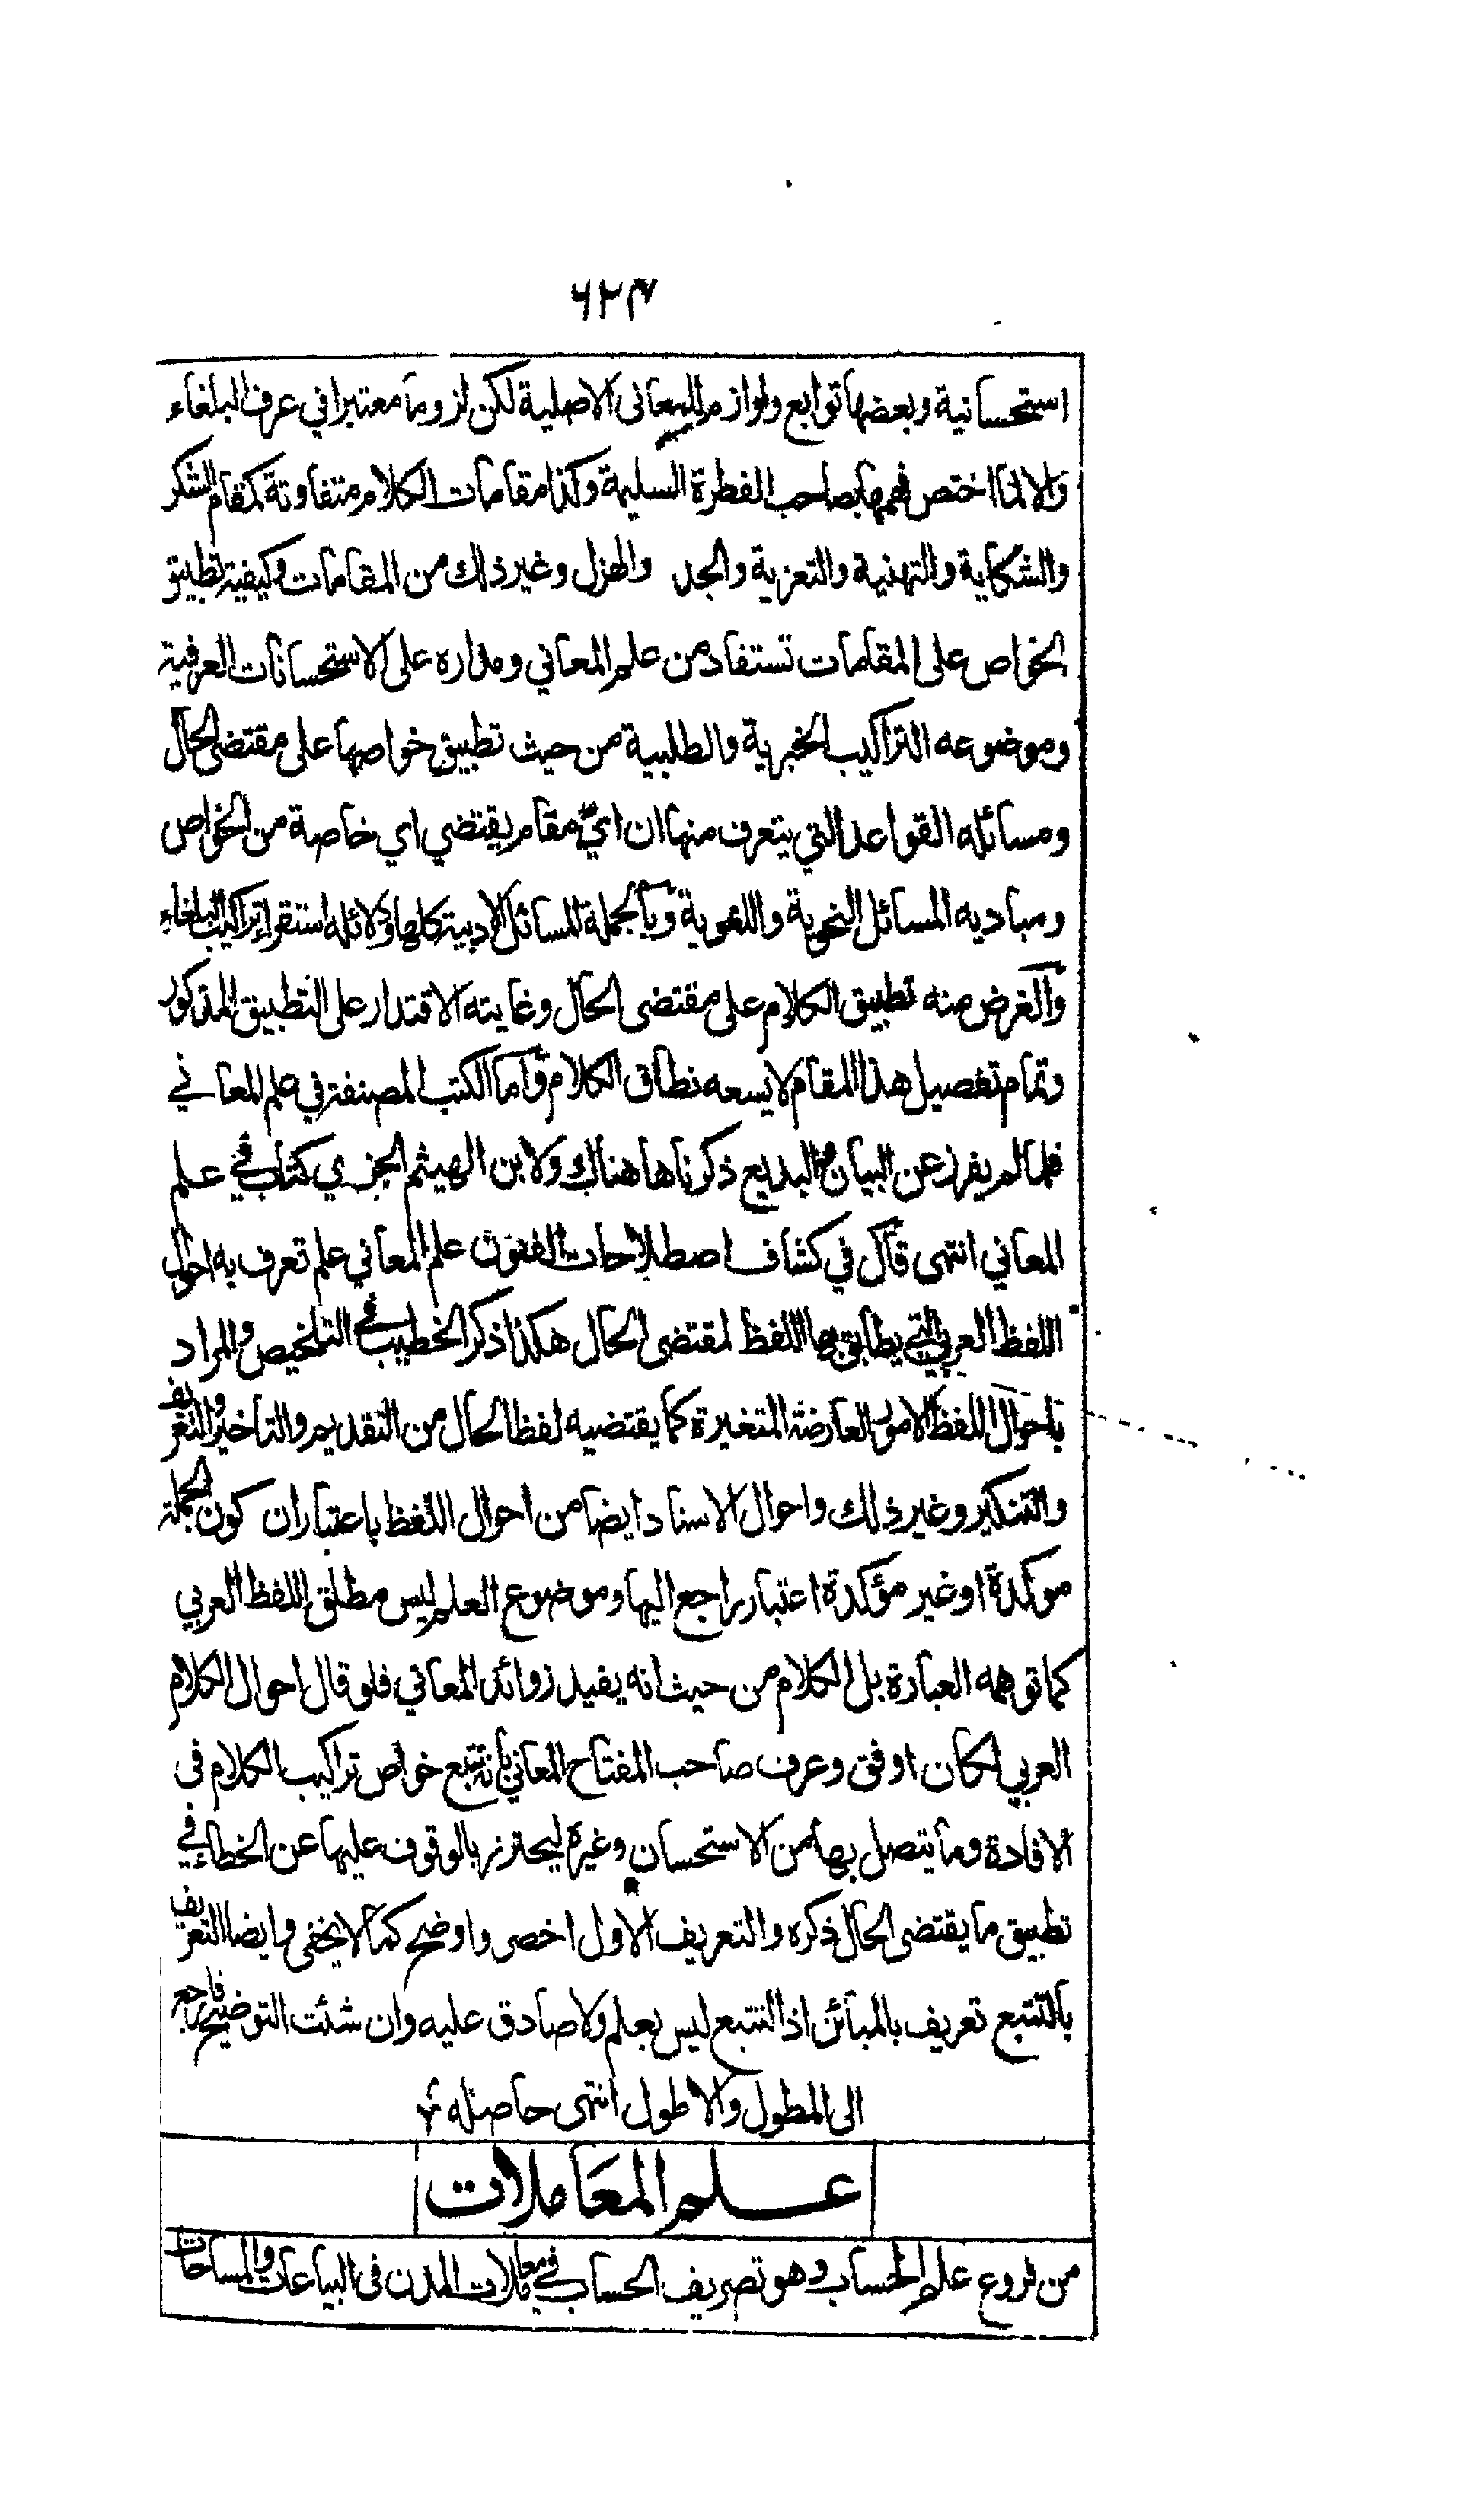 ٦٢٤
استحسانية وبعضها توابع ولوازم للمعانى الاصلية لكن لزوما معتبرا في عرف البلغاء
والا لما اختص فهمها بصاحب الفطرة السليمة وكذا مقامات الكلام متفاوتة كمقام الشكر
والشكاية والتهنية والتعزية والجد والهزل وغير ذلك من المقامات وكيفية تطبيق
الخواص على المقامات تستفاد من علم المعاني ومداره على الاستحسانات العرفية
وموضوعه التراكيب الخبرية والطلبية من حيث تطبيق خواصها على مقتضى الحال
ومسائله القواعد التي يتعرف منها ان ايّ مقام يقتضي اي خاصة من الخواص
ومباديه المسائل النحوية واللغوية وبالجملة المسائل الادبية كلها ودلائله استقراء تراكيب البلغاء
والغرض منه تطبيق الكلام على مقتضى الحال وغايته الاقتدار على التطبيق المذكور
وتمام تفصيل هذا المقام لا يسعه نطاق الكلام واما الكتب المصنفة في علم المعاني
فلما لم يفرز عن البيان والبديع ذكرناها هناك ولابن الهيثم الجزري كتاب في علم
المعاني انتهى قال في كشاف اصطلاحات الفنون علم المعاني علم تعرف به احوال
اللفظ العربي التي يطابق بها اللفظ لمقتضى الحال هكذا ذكر الخطيب في التلخيص والمراد
باحوال اللفظ الامور العارضة المتغيرة كما يقتضيه لفظ الحال من التقديم والتاخير والتعريف
والتنكير وغير ذلك واحوال الاسناد ايضا من احوال اللفظ باعتبار ان كون الجملة
موكدة او غير مؤكدة اعتبار راجع اليها وموضوع العلم ليس مطلق اللفظ العربي
كما توهمه العبارة بل الكلام من حيث انه يفيد زوائد المعاني فلو قال احوال الكلام
العربي لكان اوفق وعرف صاحب المفتاح المعاني بانه تتبع خواص تراكيب الكلام فى
الافادة وما يتصل بها من الاستحسان وغيره ليحترز بالوقوف عليها عن الخطاء في
تطبيق ما يقتضى الحال ذكره والتعريف الاول اخصر واوضح كما لا يخفى وايضا التعريف
بالتتبع تعريف بالمبائن اذ التتبع ليس بعلم ولا صادق عليه وان شئت التوضيح فارجع
الى المطول والاطول انتهى حاصله
علم المعاملات
من فروع علم الحساب وهو تصريف الحساب في معاملات المدن فى البياعات والمساحات